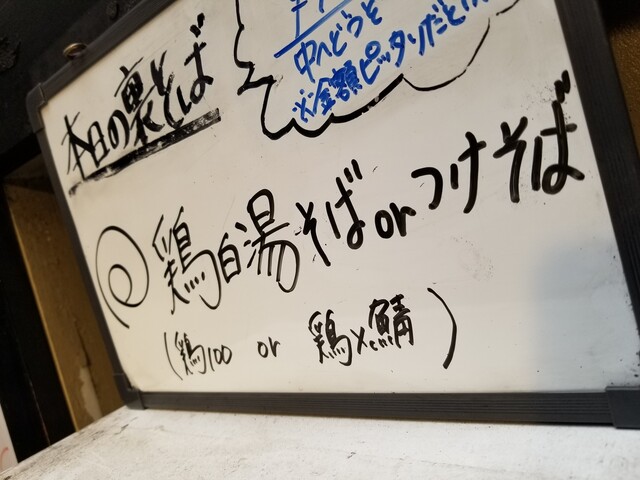 中へどうぞ
※金額ピッタリだと
本日の裏そば
鶏白湯そばorつけそば
(鶏100 or 鶏×鯖)